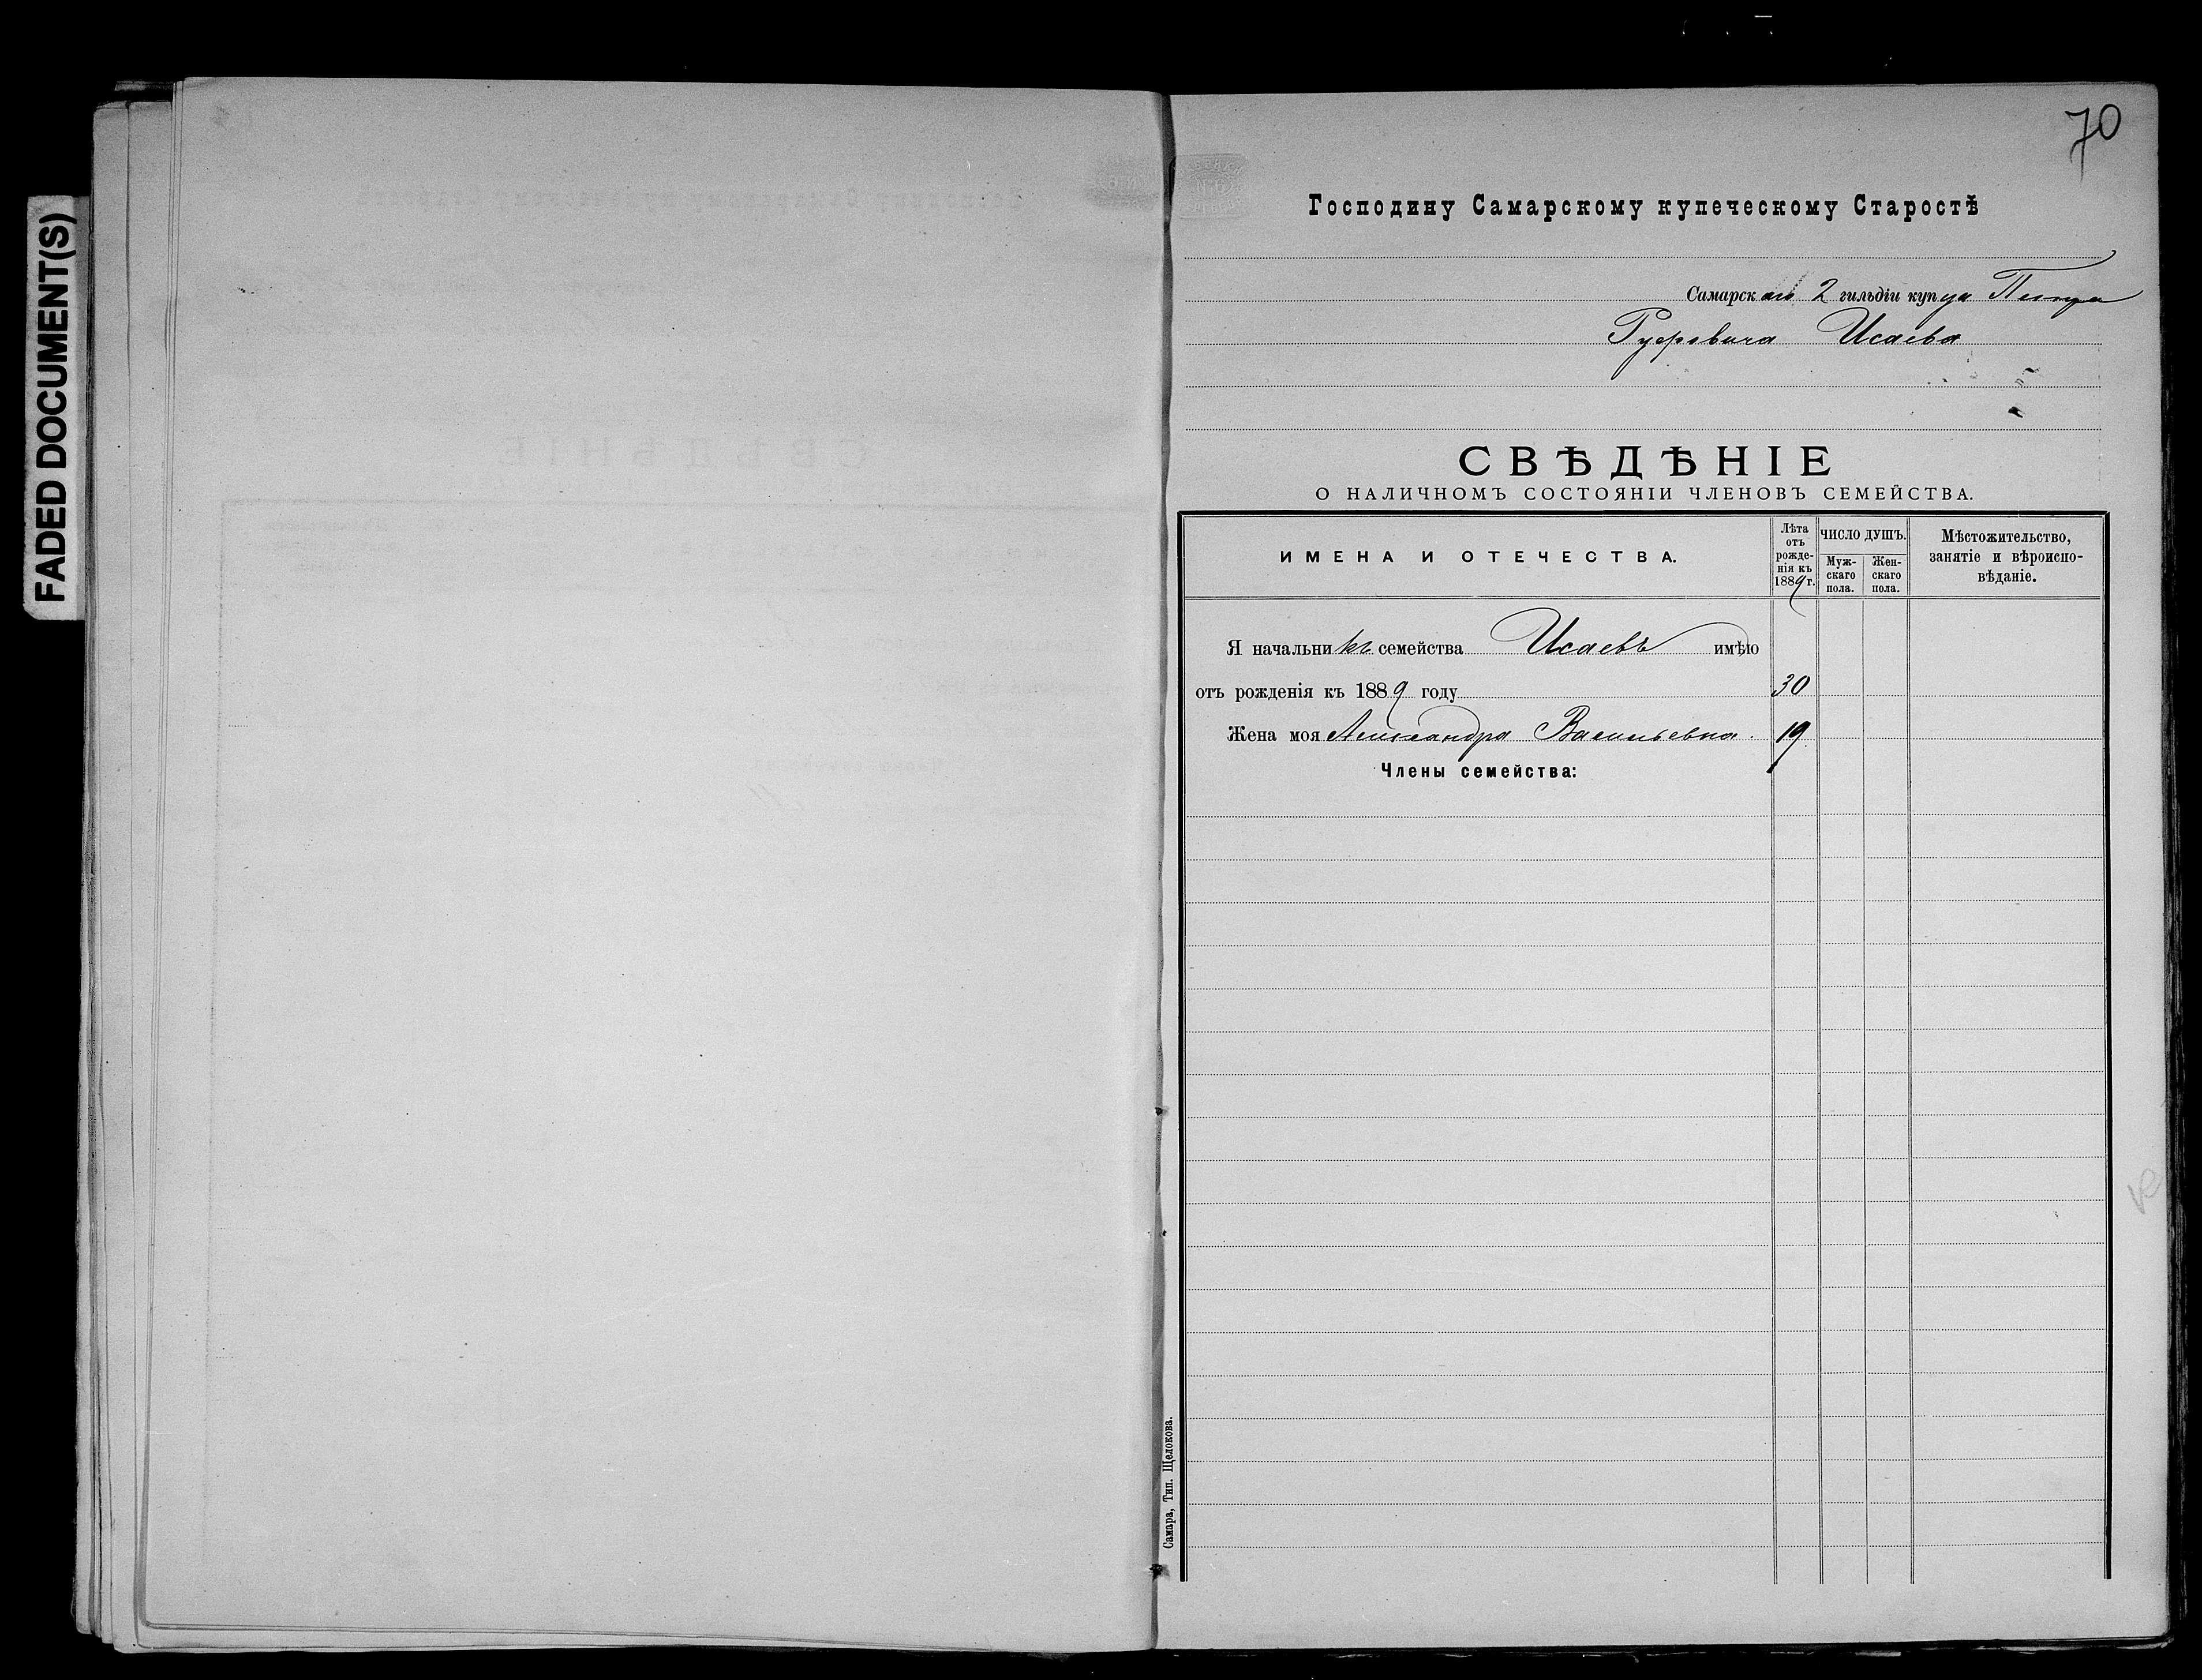 FADED DOCUMENT(S)
70
Господину Самарскому купеческому Старостѣ
Самарскаго 2 гильдіи купца Петра
Руфовича Исаева
СВѢДѢНІЕ
О НАЛИЧНОМЪ СОСТОЯНІИ ЧЛЕНОВЪ СЕМЕЙСТВА.
ИМЕНА И ОТЕЧЕСТВА.
Лѣта
отъ
рожде-
нія къ
1889 г.
ЧИСЛО ДУШЪ.
Муж-
скаго
пола.
Жен-
скаго
пола.
Мѣстожительство,
занятіе и вѣроиспо-
вѣданіе.
Я начальникъ семейства Исаевъ имѣю
отъ рожденія къ 1889 году 30
Жена моя Александра Васильевна. 19
Члены семейства:
Самара, Тип. Щелокова.